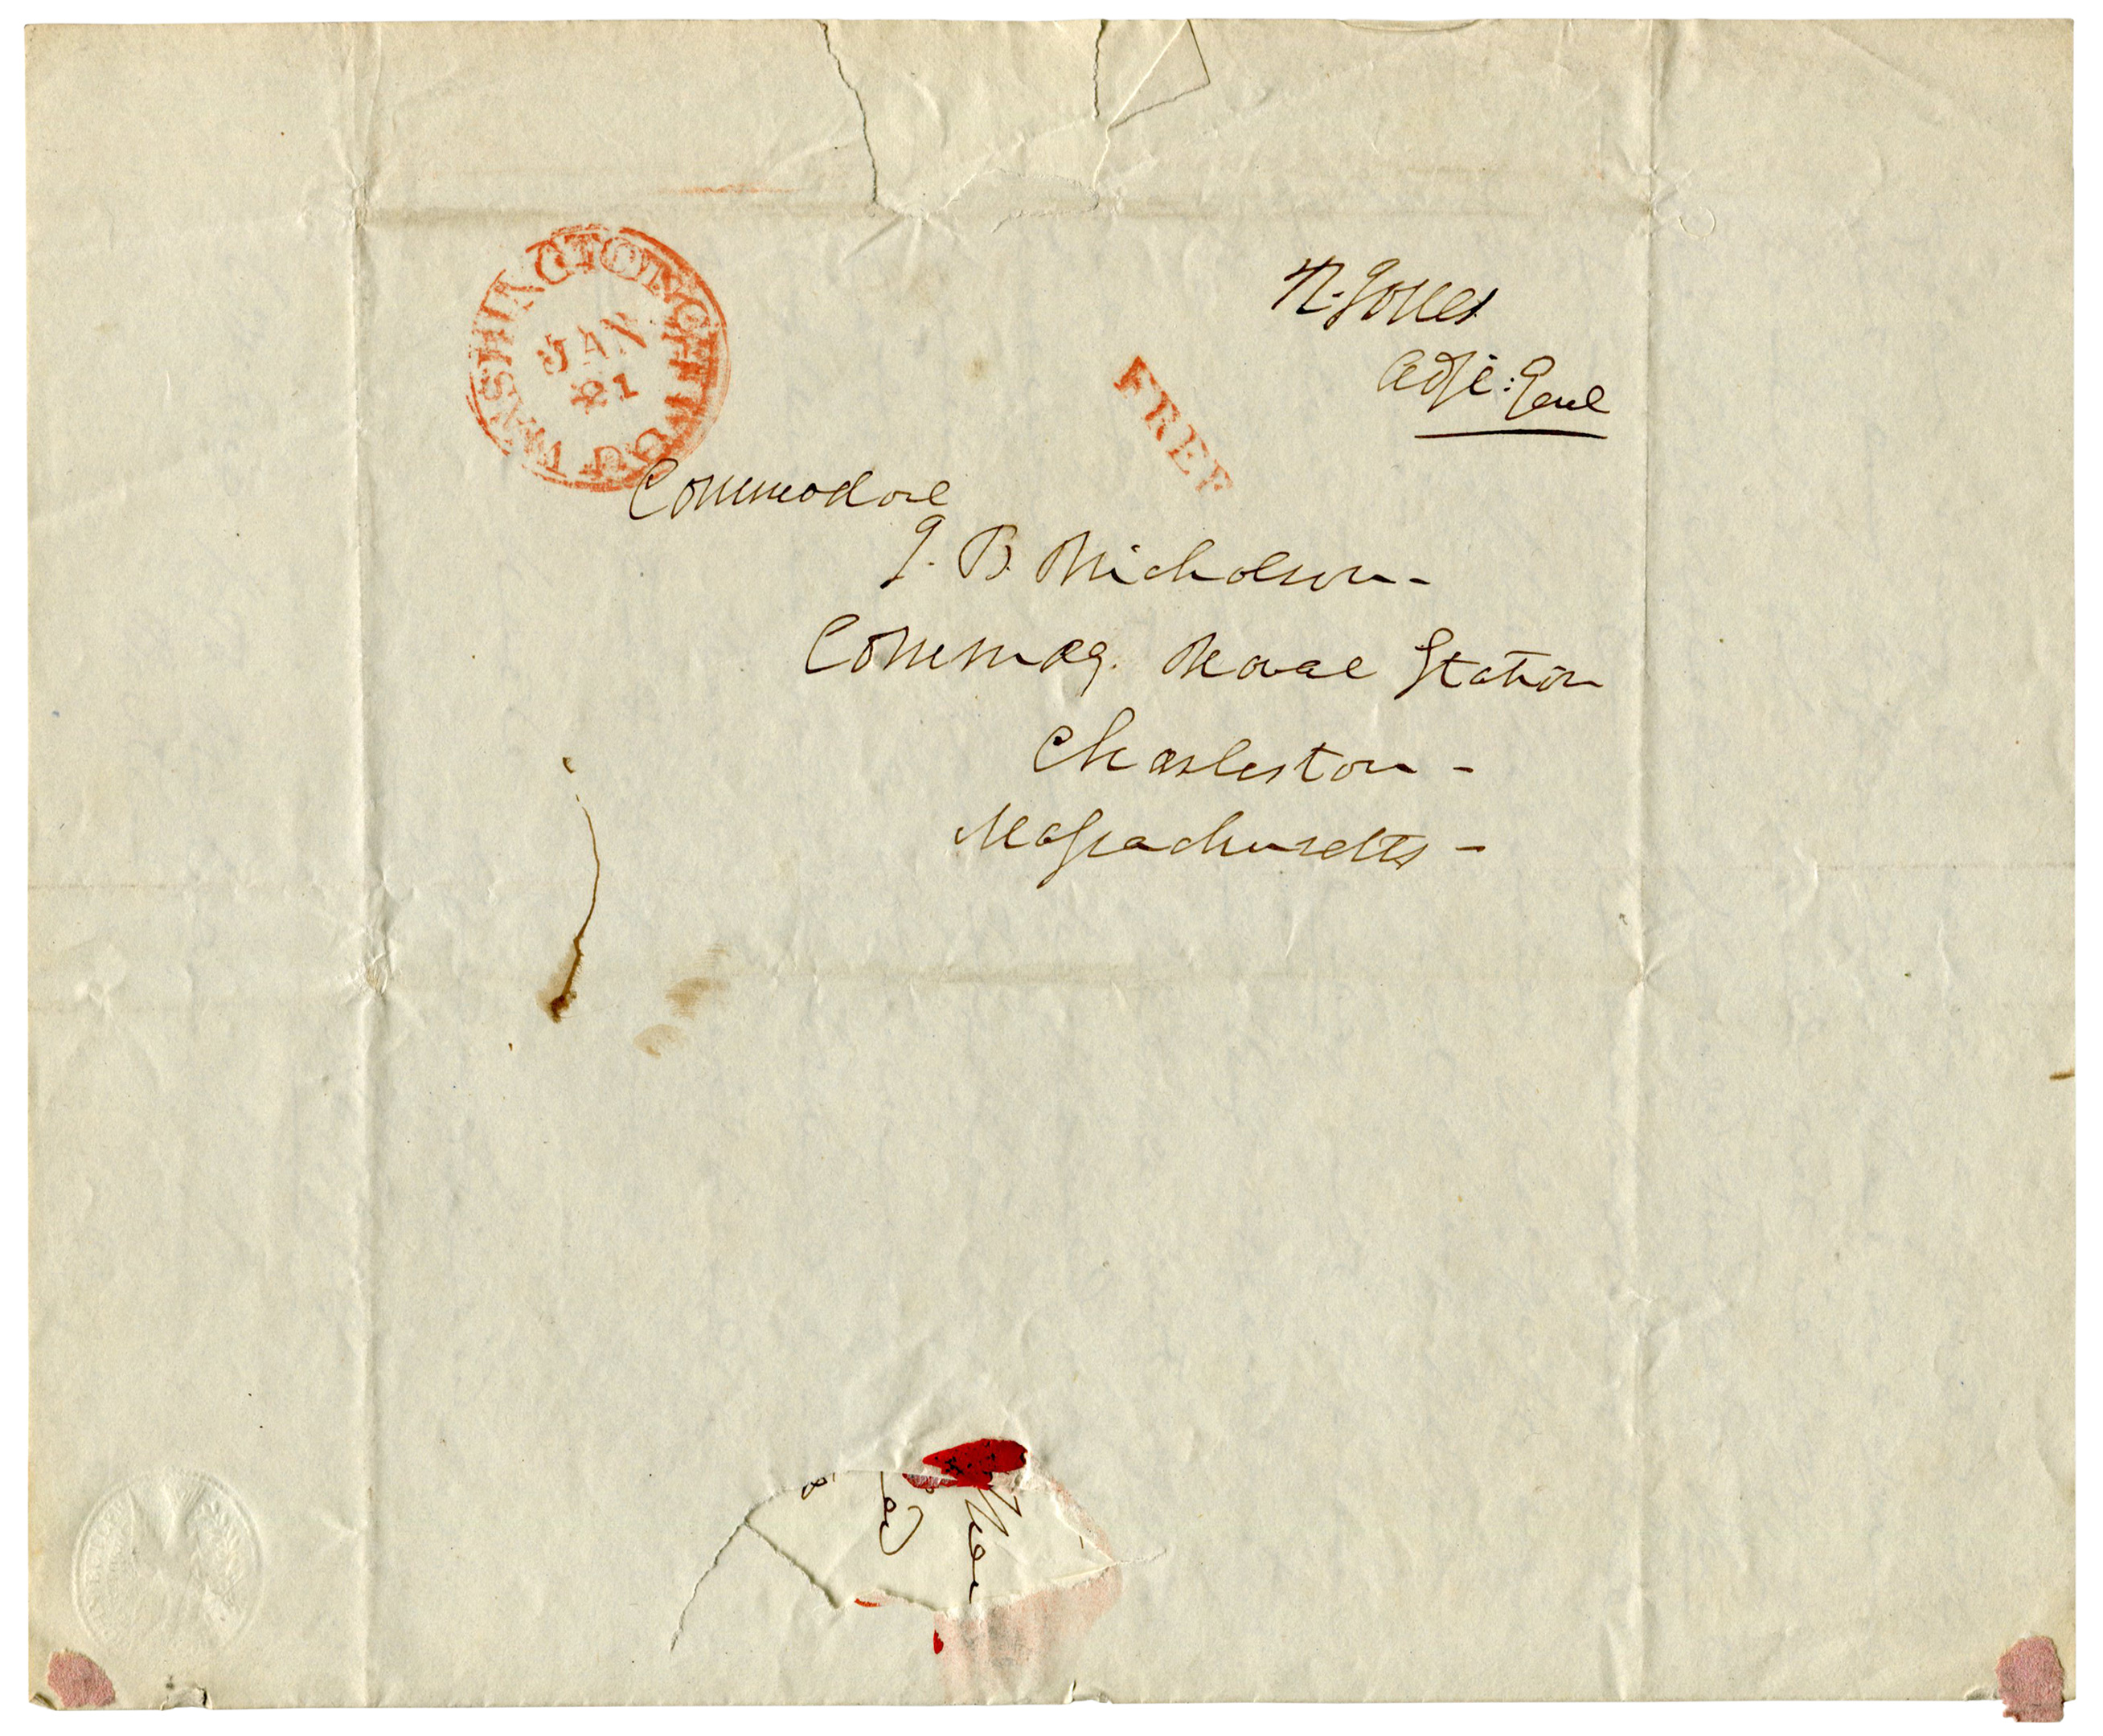 WASHINGTON CITY D.C.
JAN
21
FREE
R. Jones
Adjt: Genl
Commodore
J. B. Nicholson -
Commdg. Naval Station
Charleston -
Massachusetts -